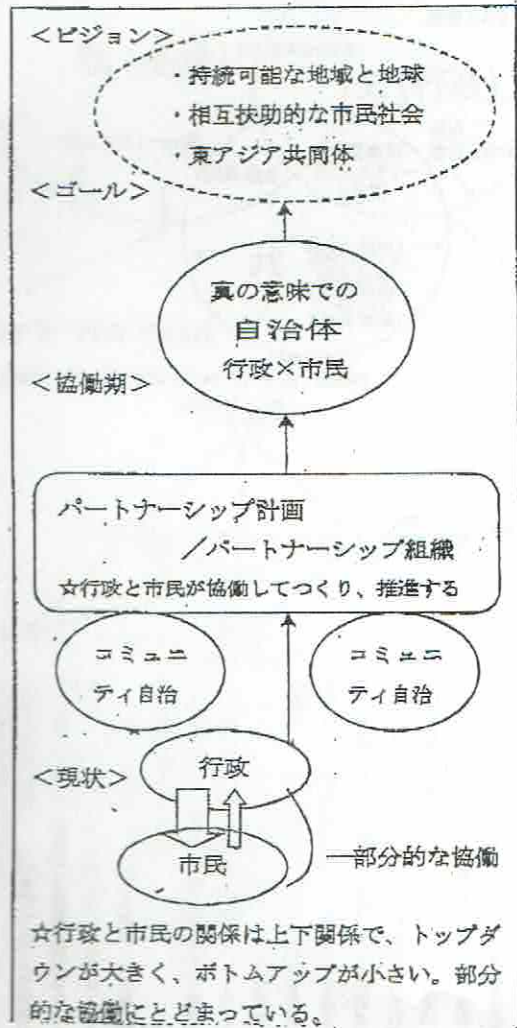 <ビジョン>
・持続可能な地域と地球
・相互扶助的な市民社会
・東アジア共同体
<ゴール>
真の意味での
自治体
行政×市民
<協働期>
パートナーシップ計画
／パートナーシップ組織
☆行政と市民が協働してつくり、推進する
コミュニ
ティ自治
コミュニ
ティ自治
<現状>
行政
市民
部分的な協働
☆行政と市民の関係は上下関係で、トップダ
ウンが大きく、ボトムアップが小さい。部分
的な協働にとどまっている。